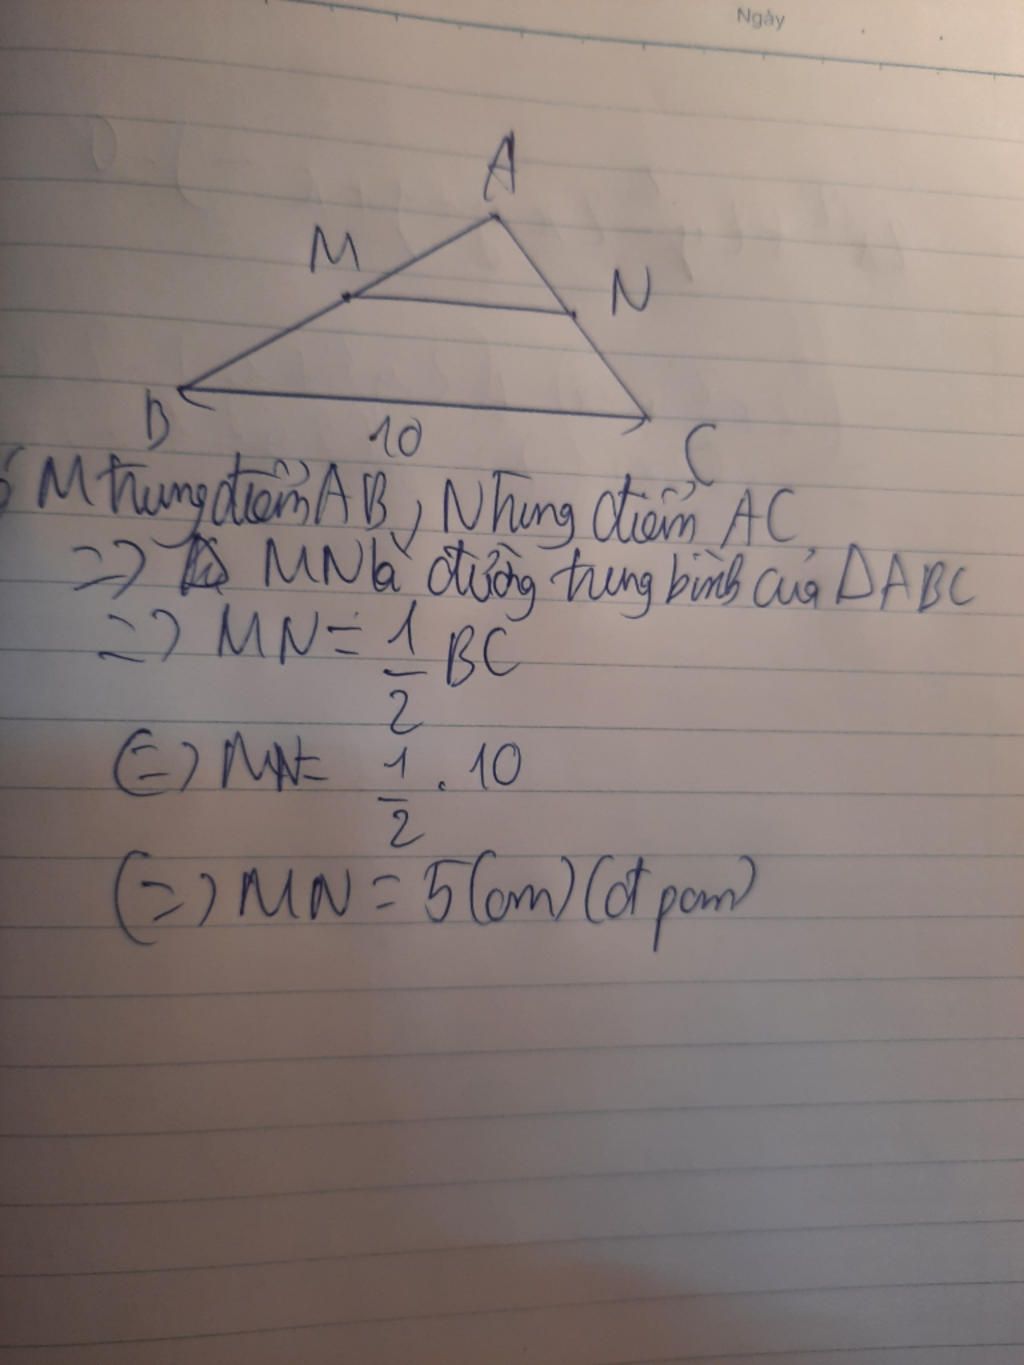 Ngày
A
M
N
B
10
C
M trung điểm AB, N trung điểm AC
=> MN là đường trung bình của ΔABC
=> MN = 1/2 BC
(=) MN = 1/2 . 10
(=) MN = 5(cm) (đpcm)